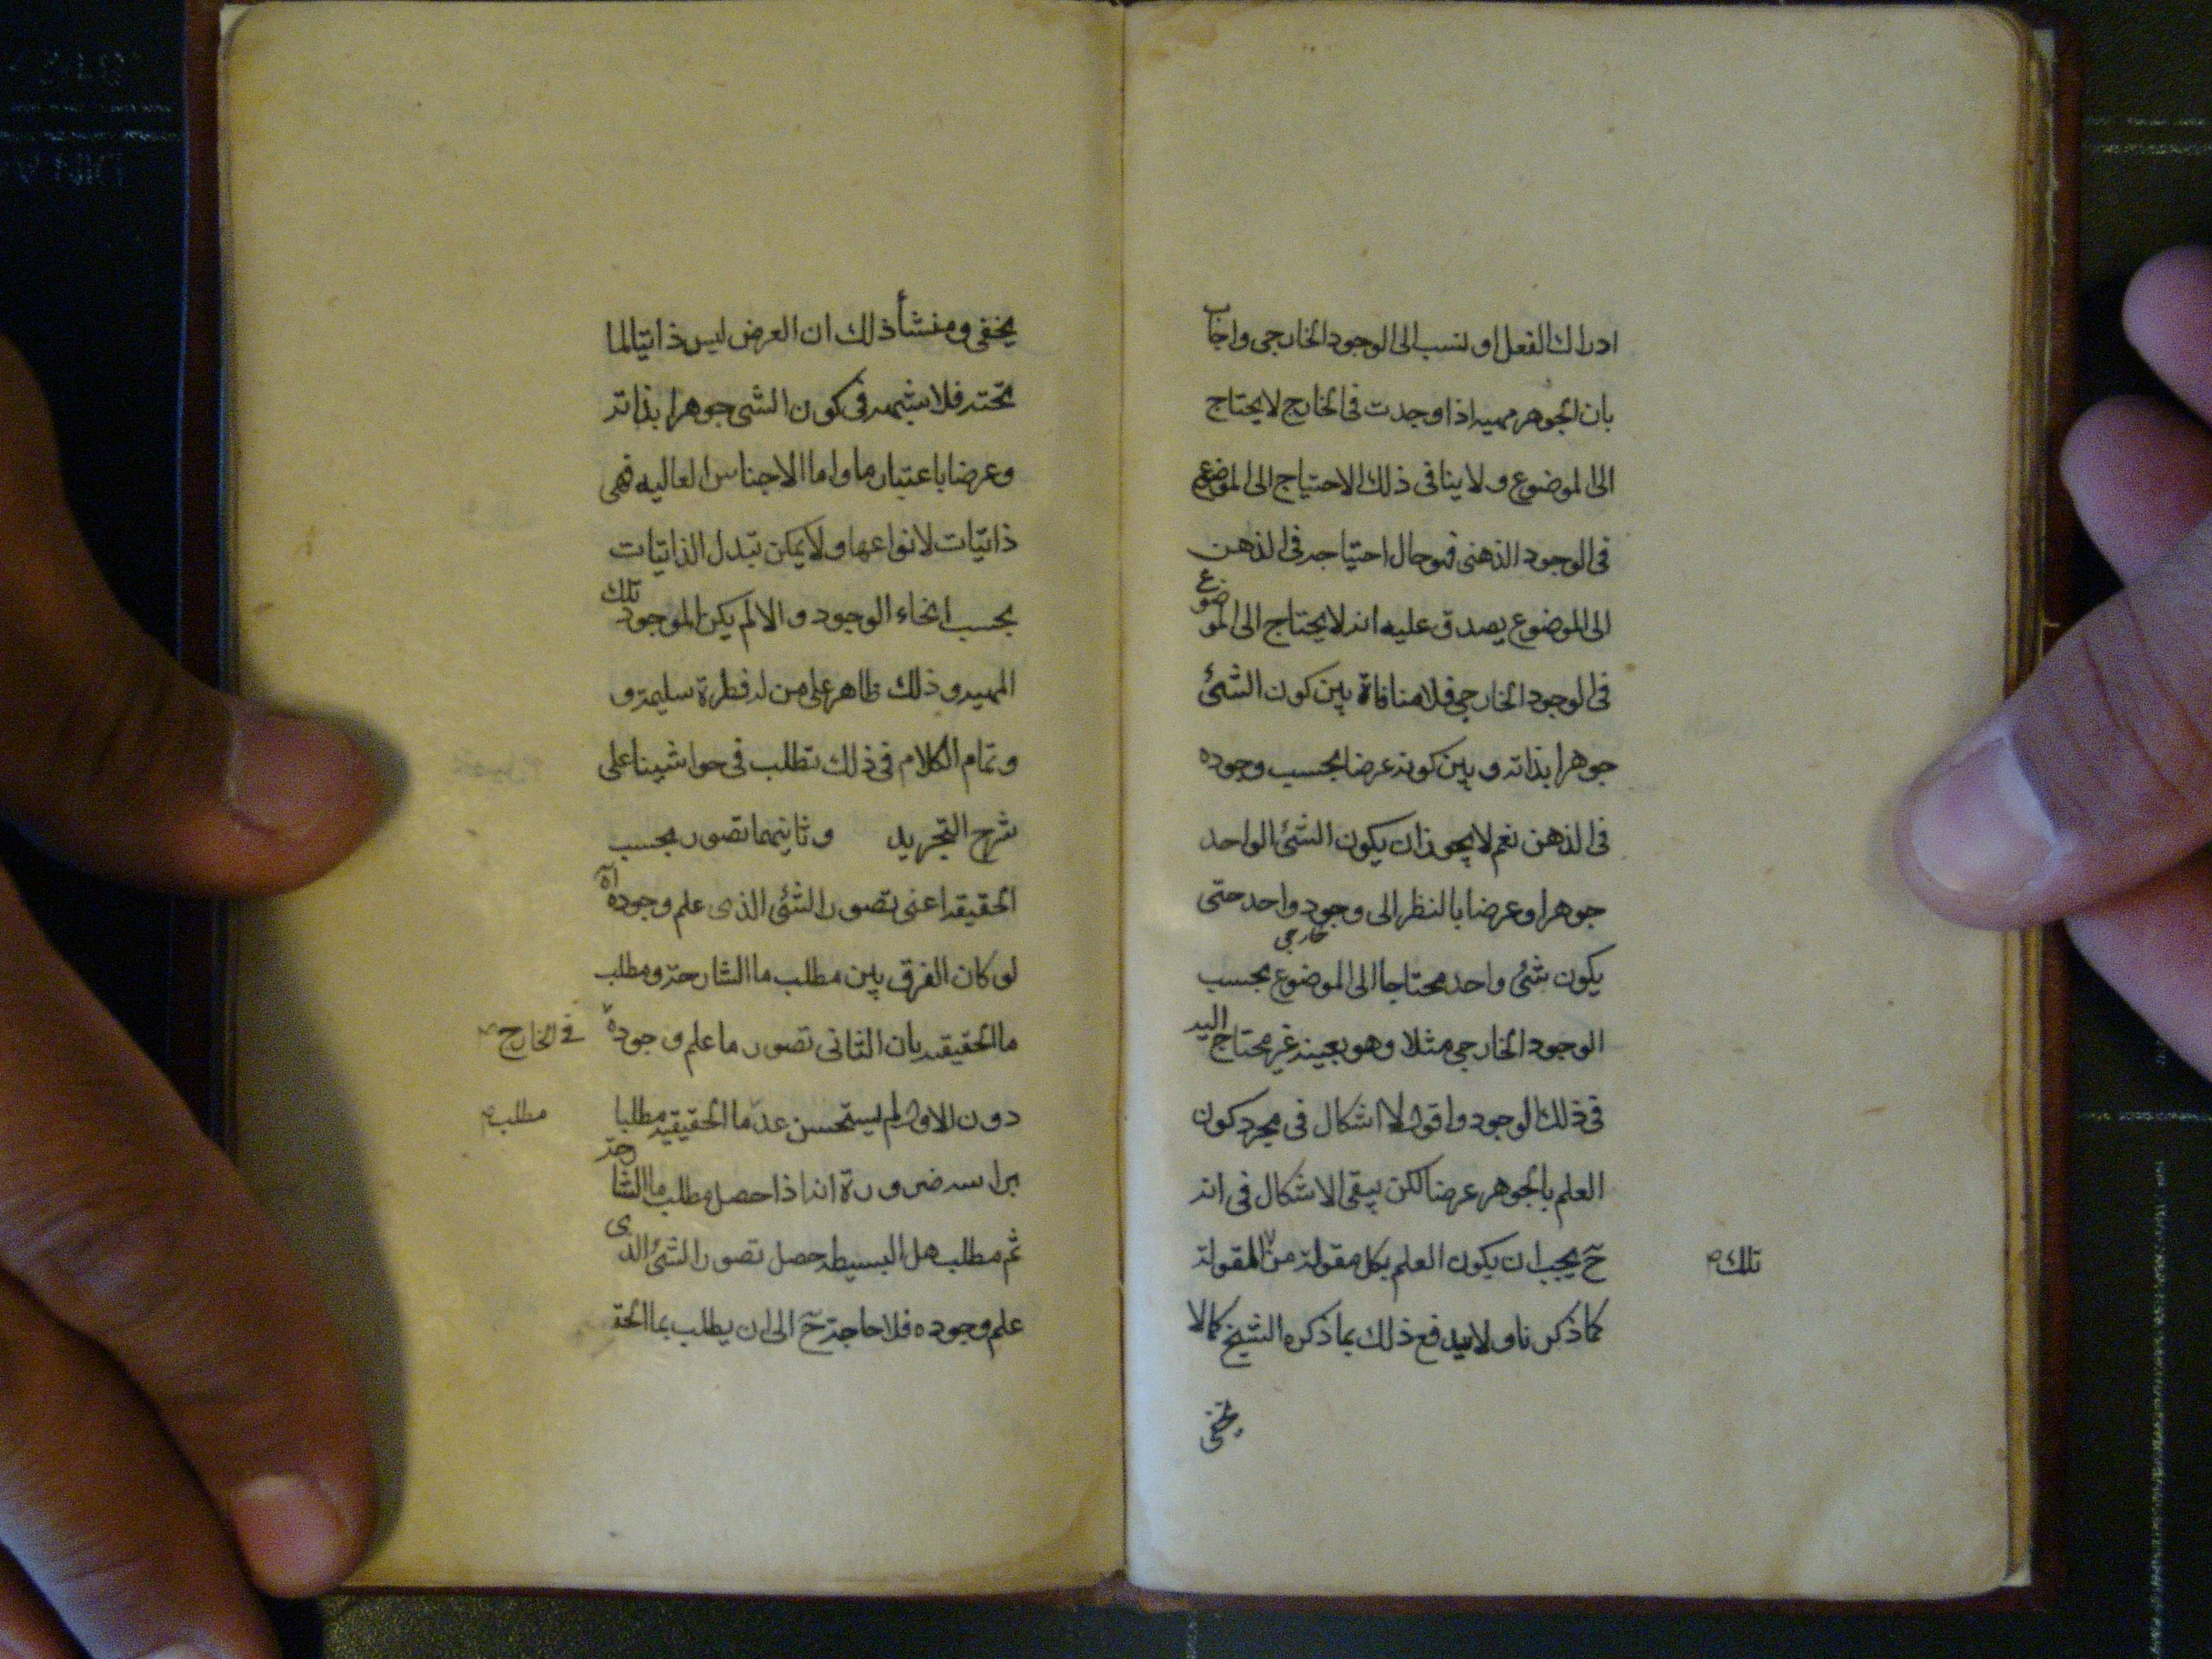 ادراك الفعل او لنسب الى الوجود الخارجى واجاب
بان الجوهر مهيه اذا وجدت فى الخارج لا يحتاج
الى الموضوع ولا ينافى ذلك الاحتياج الى الموضوع
فى الوجود الذهنى فهو حال احتياجه فى الذهن
الى الموضوع يصدق عليه انه لا يحتاج الى الموضوع
فى الوجود الخارجى فلا منافاة بين كون الشئ
جوهرا بذاته و بين كونه عرضا بحسب وجوده
فى الذهن نعم لا يجوز ان يكون الشئ الواحد
جوهرا وعرضا بالنظر الى وجود واحد حتى
خارجى
يكون شئ واحد محتاجا الى الموضوع بحسب
الوجود الخارجى مثلا وهو بعينه غير محتاج اليه
فى ذلك الوجود واقول لا اشكال فى مجرد كون
العلم بالجوهر عرضا لكن يبقى الاشكال فى انه
ح يجب ان يكون العلم بكل مقولة من المقولة
تلك
كما ذكرنا ولا يندفع ذلك بما ذكره الشيخ كما لا
يخفى
يخفى ومنشأ ذلك ان العرض ليس ذاتيا لما
تحته فلا شبهه فى كون الشى جوهرا بذاته
وعرضا باعتبار ما واما الاجناس العاليه فهى
ذاتيات لانواعها ولا يمكن تبدل الذاتيات
بحسب انحاء الوجود والا لم يكن الموجود تلك
المهيه وذلك ظاهر على من له فطرة سليمة و
وتمام الكلام فى ذلك تطلب فى حواشينا على
شرح التجريد وثانيهما تصور بحسب
الحقيقه اعنى تصور الشئ الذى علم وجوده اه
لو كان الفرق بين مطلب ما الشارحة ومطلب
ما الحقيقيه بان الثانى تصور ما علم وجوده
فى الخارج
دون الاول لم يستحسن عد ما الحقيقيه مطلبا
مطلب
براسه ضرورة انه اذا حصل مطلب ما الشارحة
ثم مطلب هل البسيطه حصل تصور الشئ الذى
علم وجوده فلا حاجة ح الى ان يطلب بما الحق